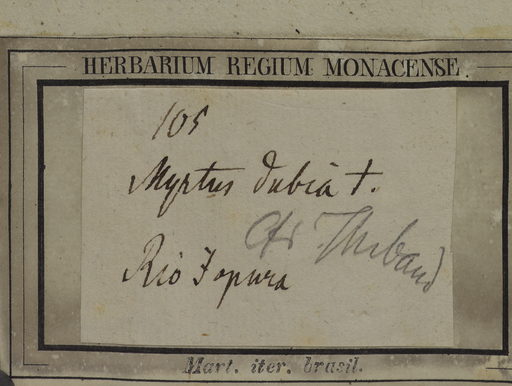 HERBARIUM REGIUM MONACENSE.
105
Myrtus dubia †.
Rio Japura
Mart. iter. brasil.